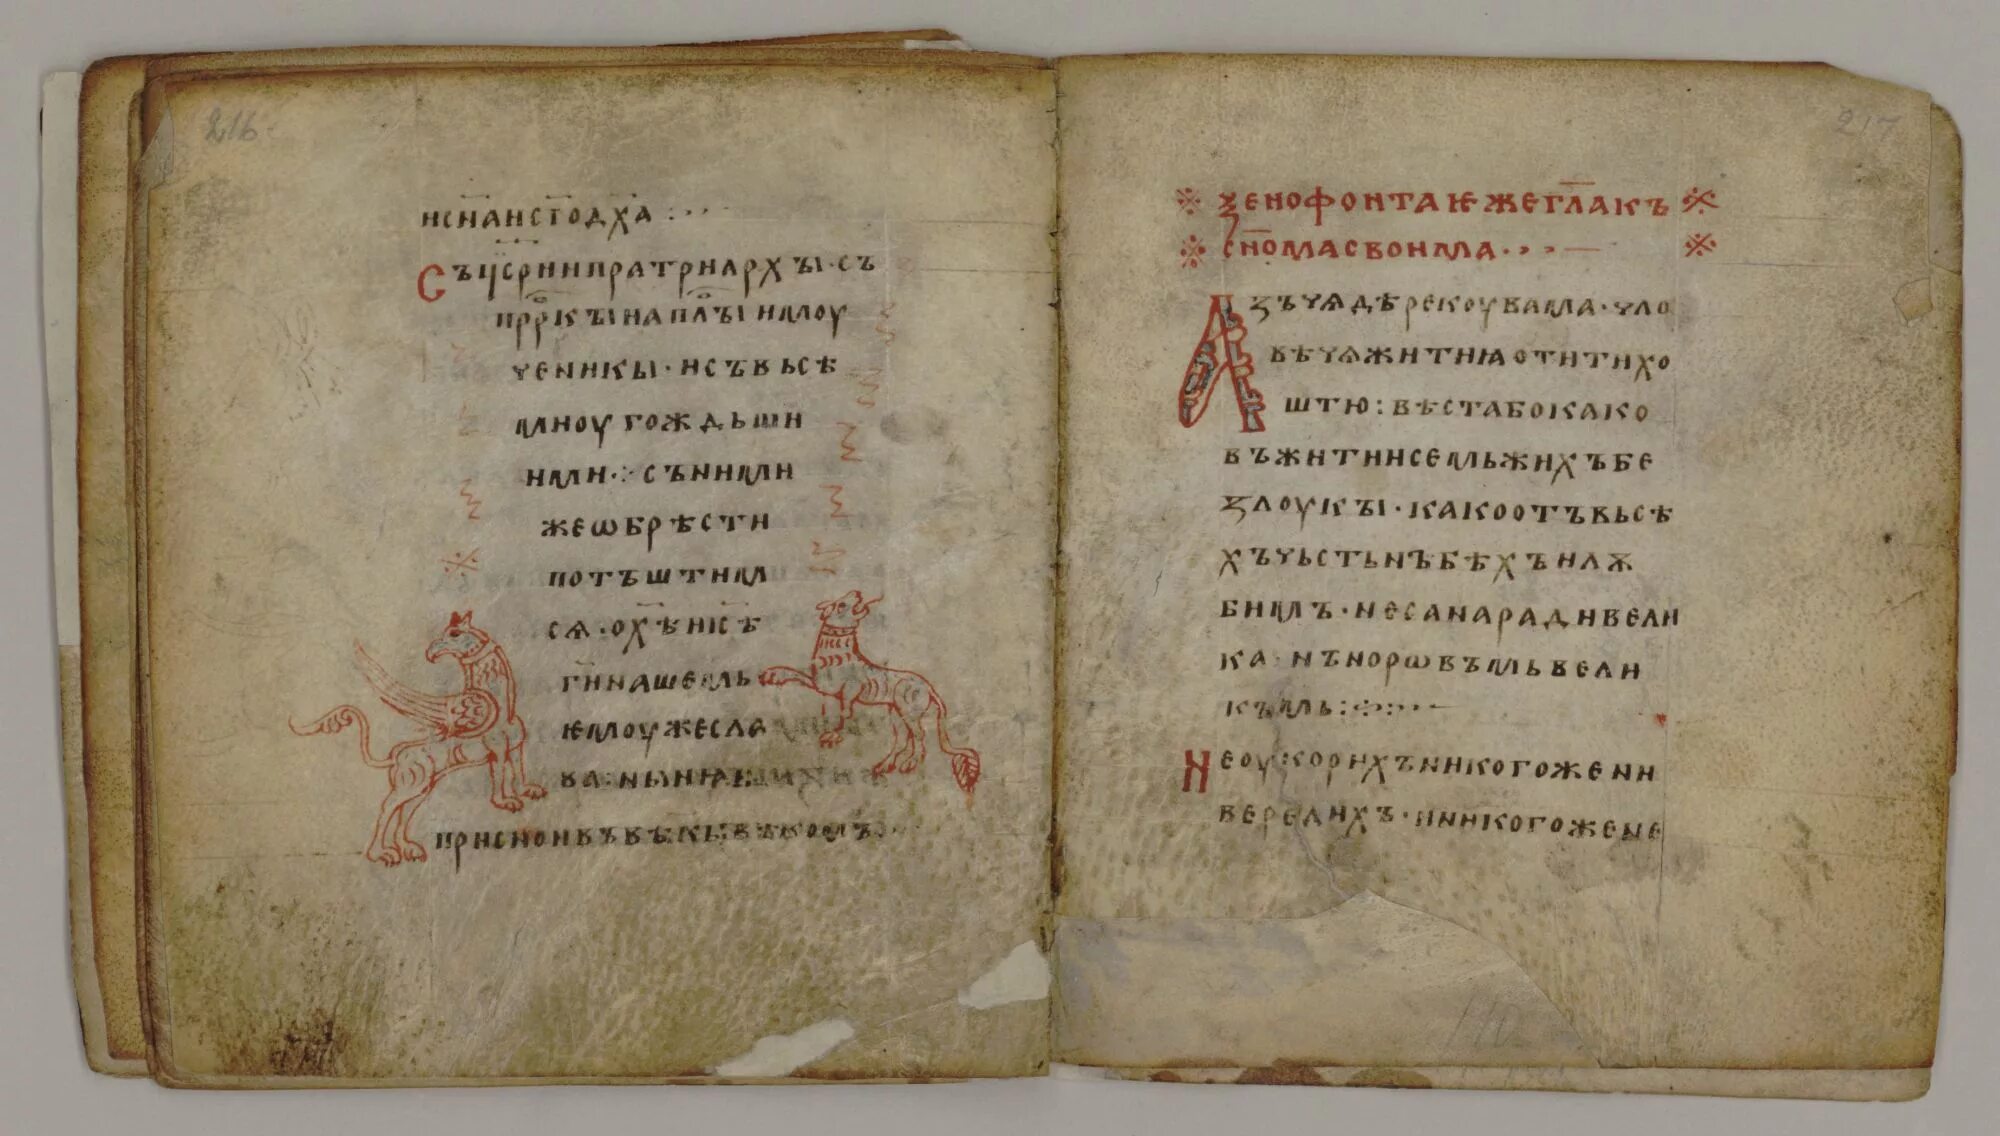 216
ис҃наист҃одх҃а :····
Съцс҃рииприатриархꙑ·съ
прр҃кꙑнап҃лꙑимоу
ченикꙑ·исъвьсѣ
миоугождьши
ими·:·съними
жеѡбрѣсти
потъштим
сѧ·ох҃ѣиис҃ѣ
г҃инашемь
ѥмоужесла
ва·нꙑнꙗ
присноивъвѣкꙑвѣкомъ
217
※ ѯенофонтаѥжегл҃акъ ※
※ сн҃омасвоима·››— ※
Азъчѧдѣрекоувама·чло
вѣчѧжитиꙗотитихо
штю:вѣстабокако
въжитиисемьжихъбе
злоукꙑ·какоотъвьсѣ
хъчьстьнъбѣхънлѭ
бимъ·несанарадивели
ка·нънорѡвъмьвели
къмь:·:···—
Неоукорихъникогожени
вередихъ·ниникогожене
140